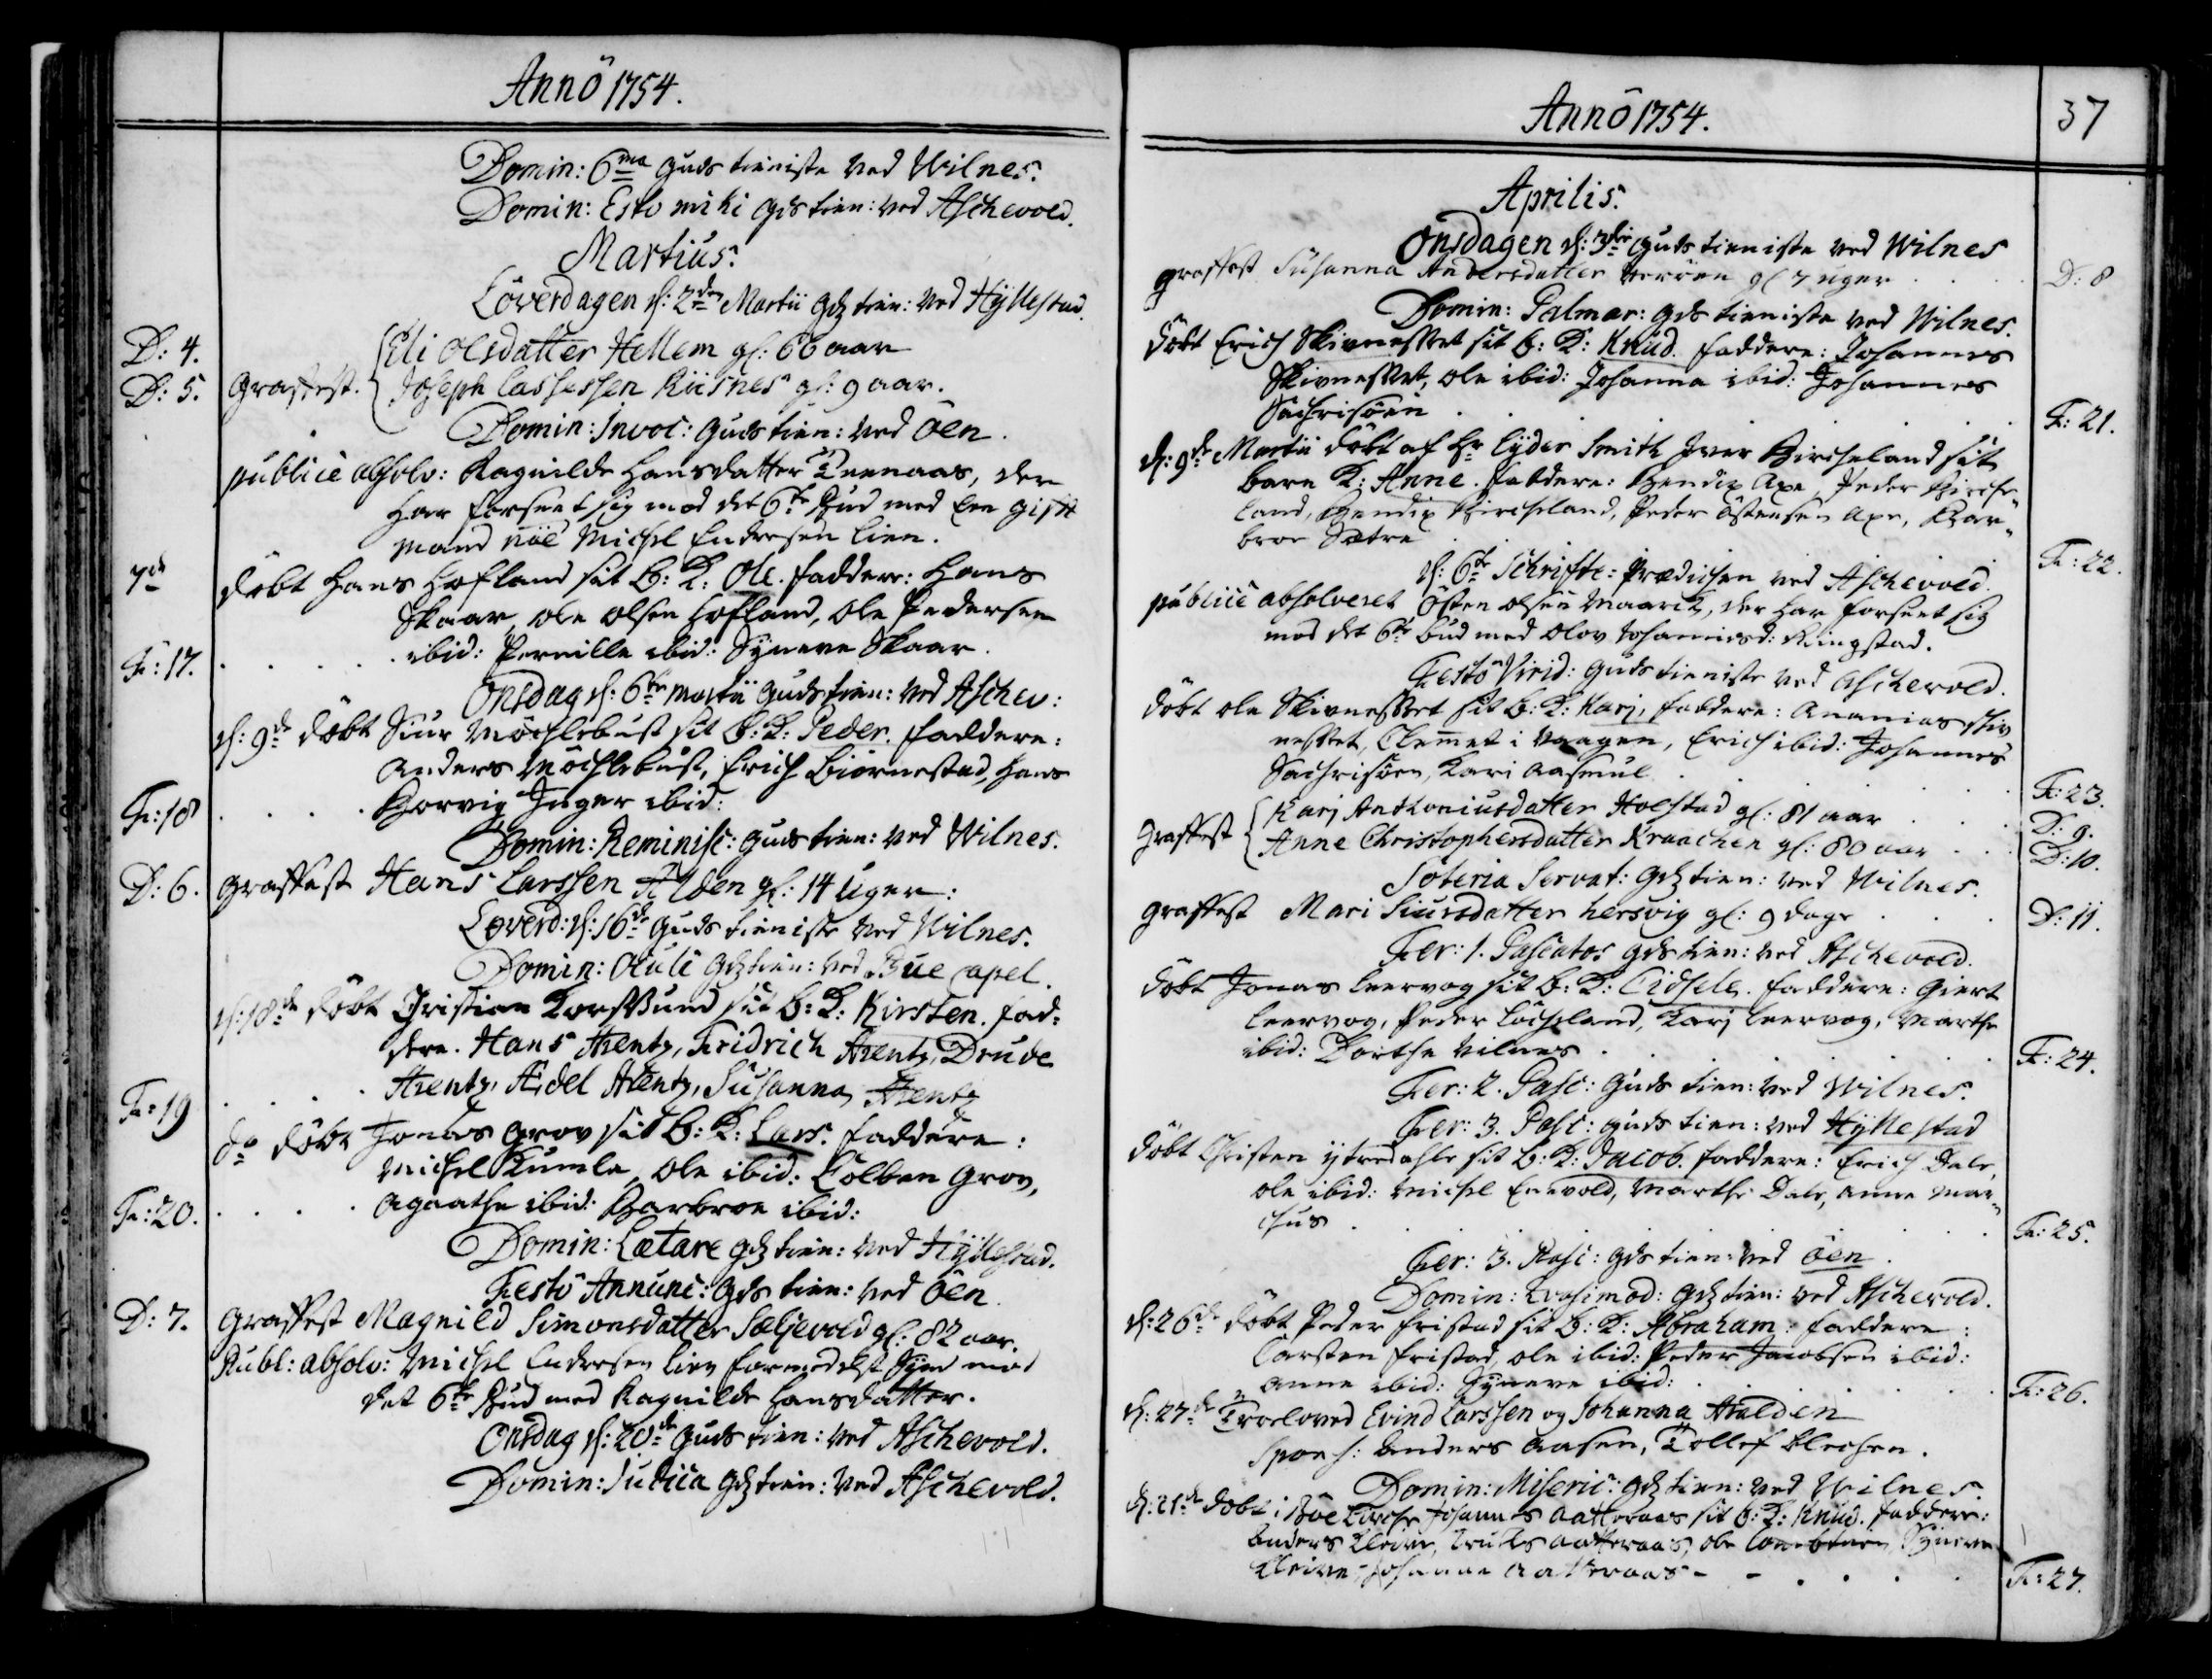 Anno 1754.
Domin: 6ma Guds tieniste ved Wilnes.
Domin: Esto mihi Gds tien: ved Aschevold.
Martius.
Löverdagen d: 2den Martii Gds tien: ved Hyllestad.
D: 4. Eli Olsdatter Hellem gl: 66 aar
D: 5. Graffest. Joseph Lassessen Riisnes gl: 9 aar.
Domin: Invoc: Guds tien: ved Öen.
publicè absolv: Ragnilde Hansdatter Teenaas, der
har forseet sig mod det 6te Bud med een gift
Mand nöe Michel Endresen Lien.
7de döbt Hans Hofland sit B: K: Ole. faddere: Hans
Skaar, Ole Olsen Hofland, Ole Pedersen
F: 17. ibid: Pernille ibid: Synneve Skaar.
Onsdag d: 6te Martii Guds tien: ved Aschev:
d: 9de döbt Siur Möchlebust sit B: K: Peder. faddere:
Anders Möchlebust, Erich Biörnestad, Hans
F: 18 Horvig Inger ibid:
Domin: Reminisc: Guds tien: ved Wilnes.
D: 6. Graffest Hans Larssen Alden gl: 14 Uger:
Löverd: d: 16de Guds tieniste ved Wilnes.
Domin: Oculi Gds tien: ved Bue Capel.
d: 18de döbt Christian Korssund sit B: K: Kirsten. fad:
dere. Hans Arentz, Fridrich Arentz, Drude
F: 19 Arentz, Aidel Arentz, Susanna Arentz
do döbt Jonas Grov sit B: K: Lars. faddere:
Michel Kumle, Ole ibid: Colben Grov,
F: 20. Agaathe ibid: Barbroe ibid:
Domin: Lætare Gds tien: ved Hyllestad.
Festo Annunc: Gds tien: ved Öen.
D: 7. Graffest Magnild Simonsdatter Sæljevold gl: 82 aar.
Publ: absolv: Michel Endresen Lien formedelst Synd mod
det 6te Bud med Ragnilde Hansdatter.
Onsdag d: 20de Guds tien: ved Aschevold.
Domin: Judica Gds tien: ved Aschevold.
Anno 1754.
37
Aprilis.
Onsdagen d: 3die Guds tieniste ved Wilnes
Graffest Susanna Andersdatter Verøen gl 7 uger D: 8
Domin: Palmar: Gds tieniste ved Wilnes.
döbt Erich Skivenesset sit B: K: Knud. faddere: Johannes
Skivnesset, Ole ibid: Johanna ibid: Johannes
Sachrisöen F: 21.
d: 9de Martii döbt af Hr Eyder Smith Iver Kircheland sit
Barn K: Anne. faddere: Bendix Axe, Peder Kirche
land, Bendix Kircheland, Peder Östensen Axe, Bar
broe Sætre F: 22.
d: 6te Schrifte: Prædichen ved Aschevold.
publicè absolveret Östen Olsen Maarch, der har forseet sig
mod det 6te Bud med Olov Johannesd: Ringstad.
Festo Virid: Guds tieniste ved Aschevold.
döbt Ole Skivnesset sit B: K: Karj, faddere: Ananias Skiv
nesset, Clemet i Vaagen, Erich ibid: Johannes
Sachrisöen, Kari Aasmul F: 23.
Graffest Karj Anthoniusdatter Holstad gl: 81 aar D: 9.
Anne Christophersdatter Kraachen gl: 80 aar D: 10.
Soteria Servat: Gds tien: ved Wilnes.
Graffest Mari Siursdatter Hersvig gl: 9 dage D: 11.
Fer: 1. Paschatos Gds tien: ved Aschevold.
döbt Jonas Leervog sit B: K: Cidsele. faddere: Giert
Leervog, Peder Löcheland, Karj Leervog, Marthe
ibid: Dorthe Vilnes F: 24.
Fer: 2. Pasc: Guds tien: ved Wilnes.
Fer: 3. Pasc: Guds tien: ved Hyllestad
döbt Christen Ytredahle sit B: K: Jacob. faddere: Erich Dale,
Ole ibid: Michel Enevold, Marthe Dale, Anne Mar
chus F: 25.
Fer: 3. Pasc: Gds tien: ved Öen.
Domin: Qvasimod: Gds tien: ved Aschevold.
d: 26de döbt Peder Fristad sit B: K: Abraham: faddere:
Carsten Fristad, Ole ibid: Peder Jacobsen ibid:
Anne ibid: Synneve ibid: F: 26.
d: 27de Troeloved Evind Larssen og Johanna Aralden
spons: Anders Aasen, Tollef Blechen.
Domin: Miseric: Gds tien: ved Wilnes.
d: 21de döbt i Böe Kirche Johannes Aatteraas sit B: K: Knud. faddere:
Anders Kleive, Truls Aatteraas, Ole Synneve
Kleive, Johanne Aatteraas F: 27.